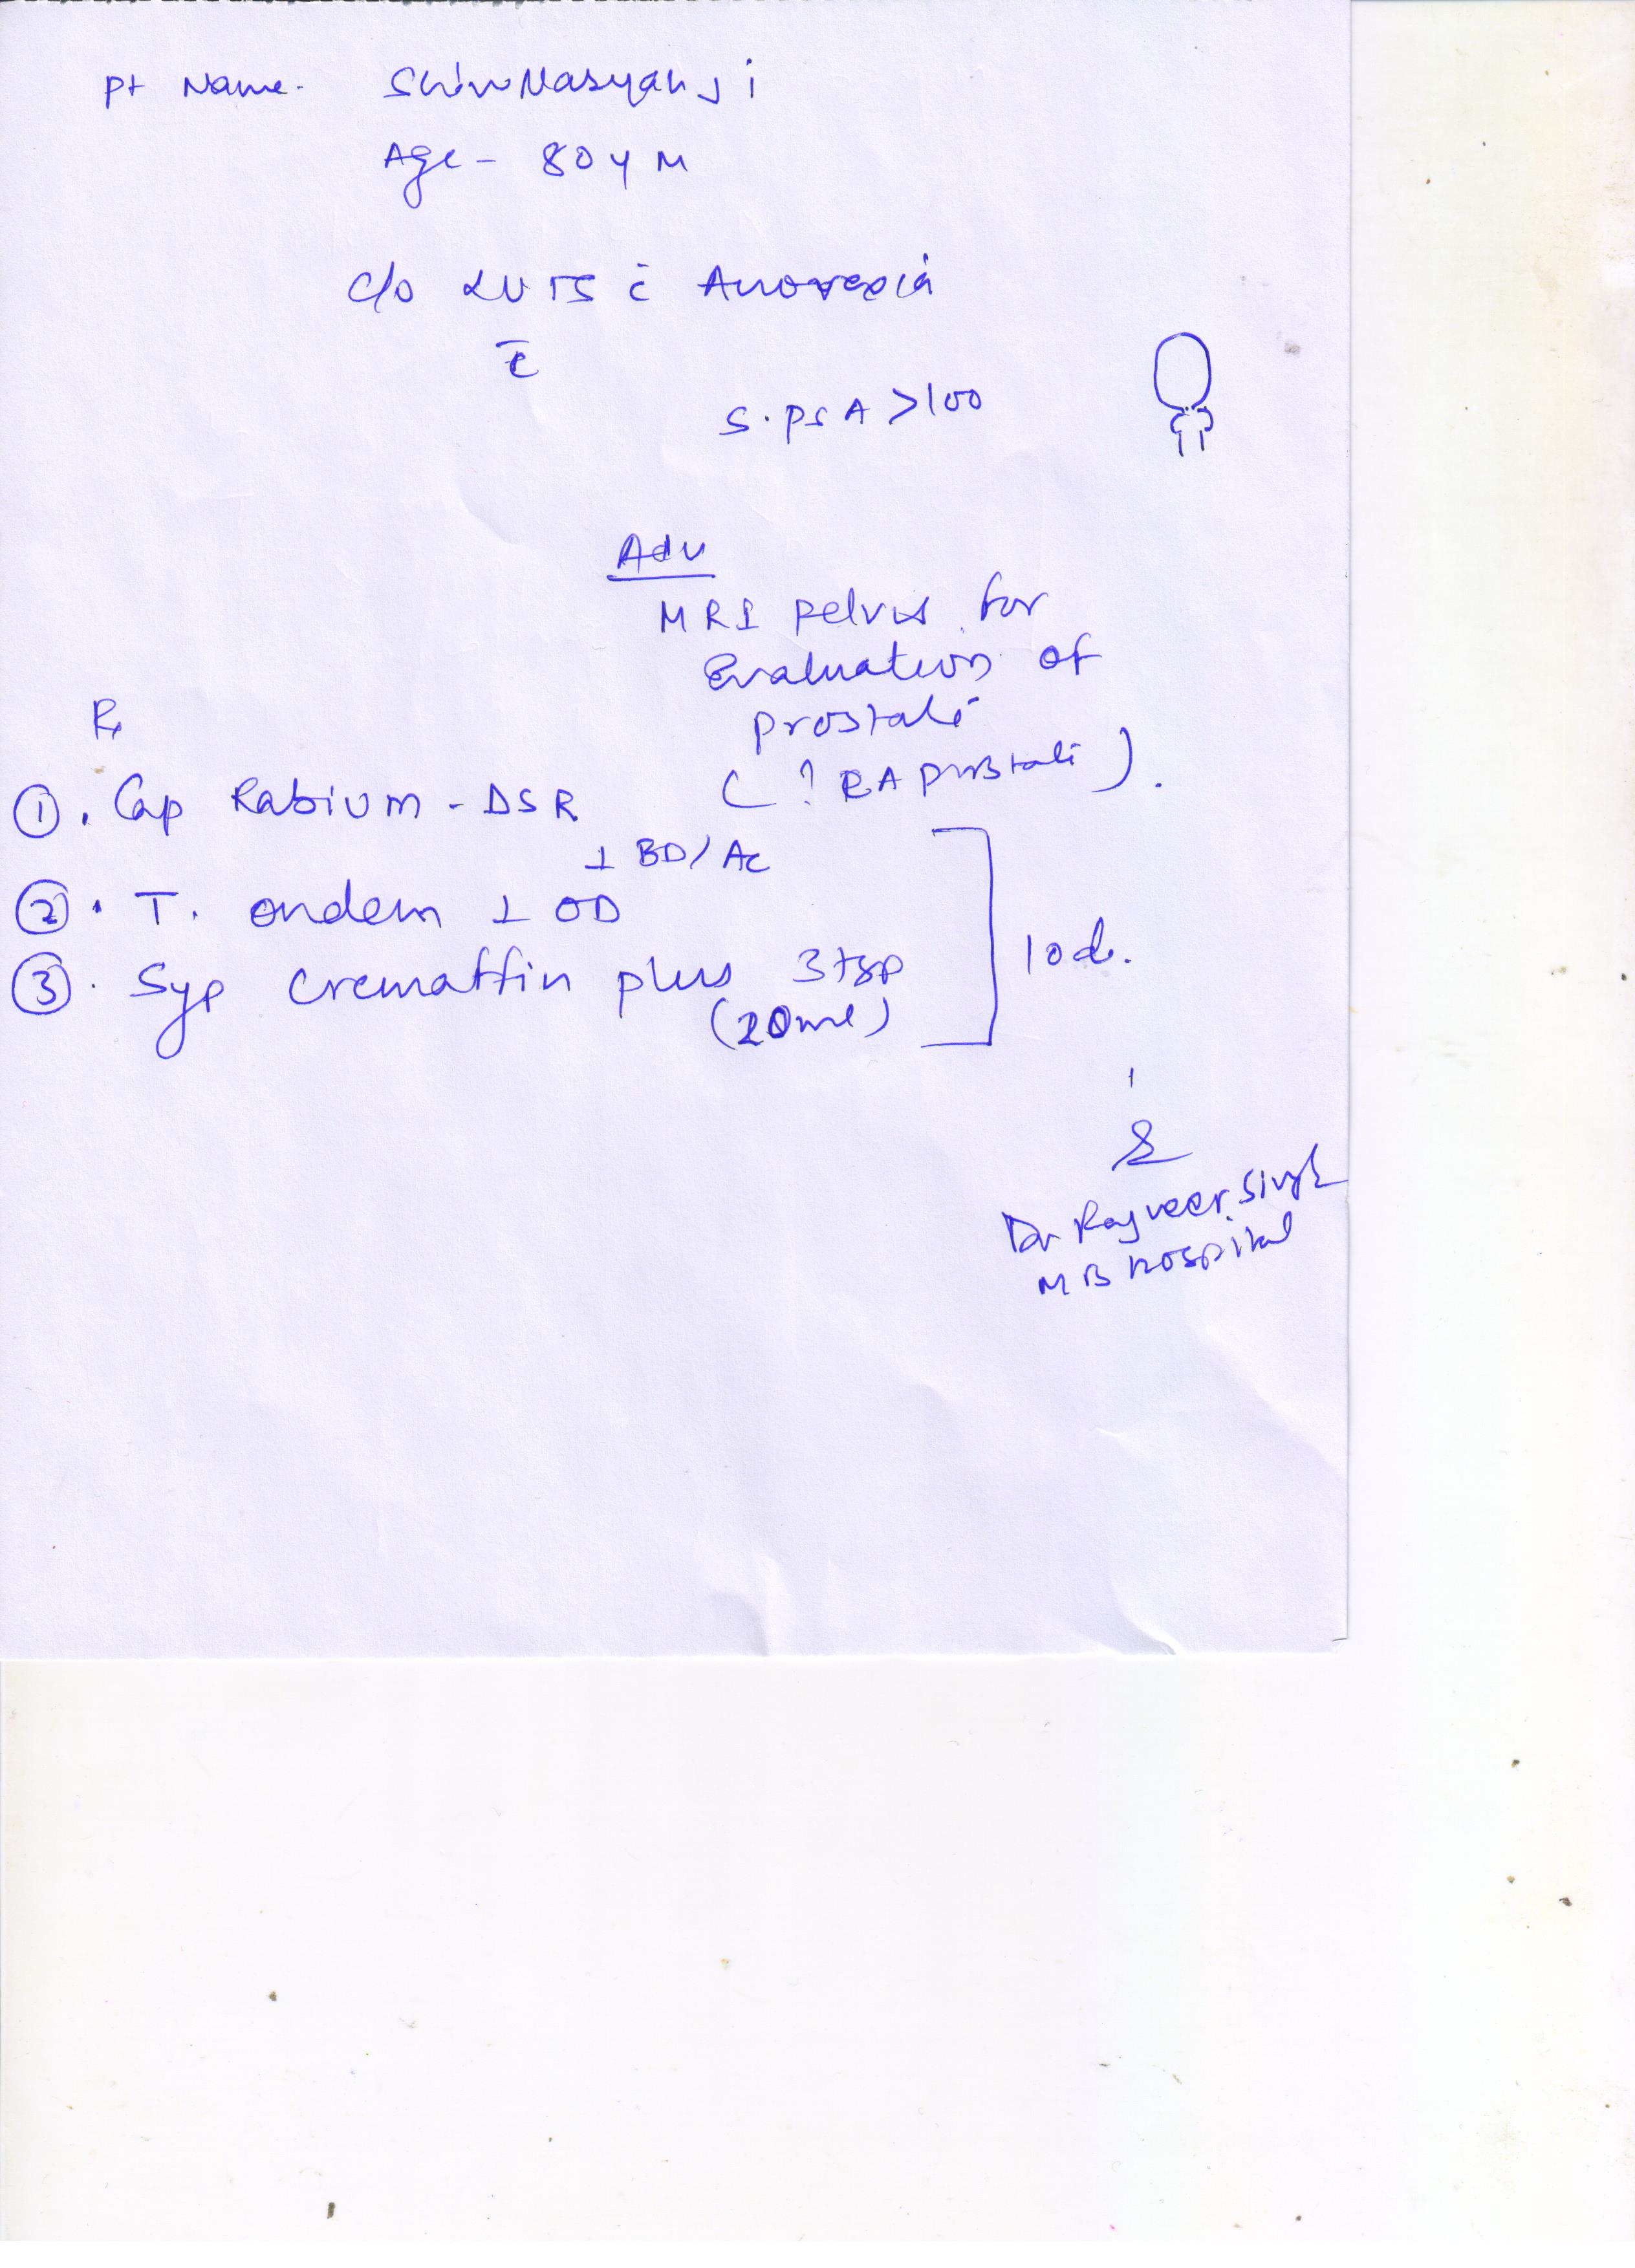 Pt Name- ShivNarayan Ji
Age - 80 y M
c/o LUTS c̄ Anorexia
c̄
S. PSA >100
Adv
MRI pelvis for
Evaluation of
prostate
( ? CA prostate ).
Rx
①. Cap Rabium - DSR
1 BD/AC
②. T. ondem 1 OD
③. Syp Cremaffin plus 3 tsp
(20ml)
10 d.
Dr Rajveer Singh
MB Hospital